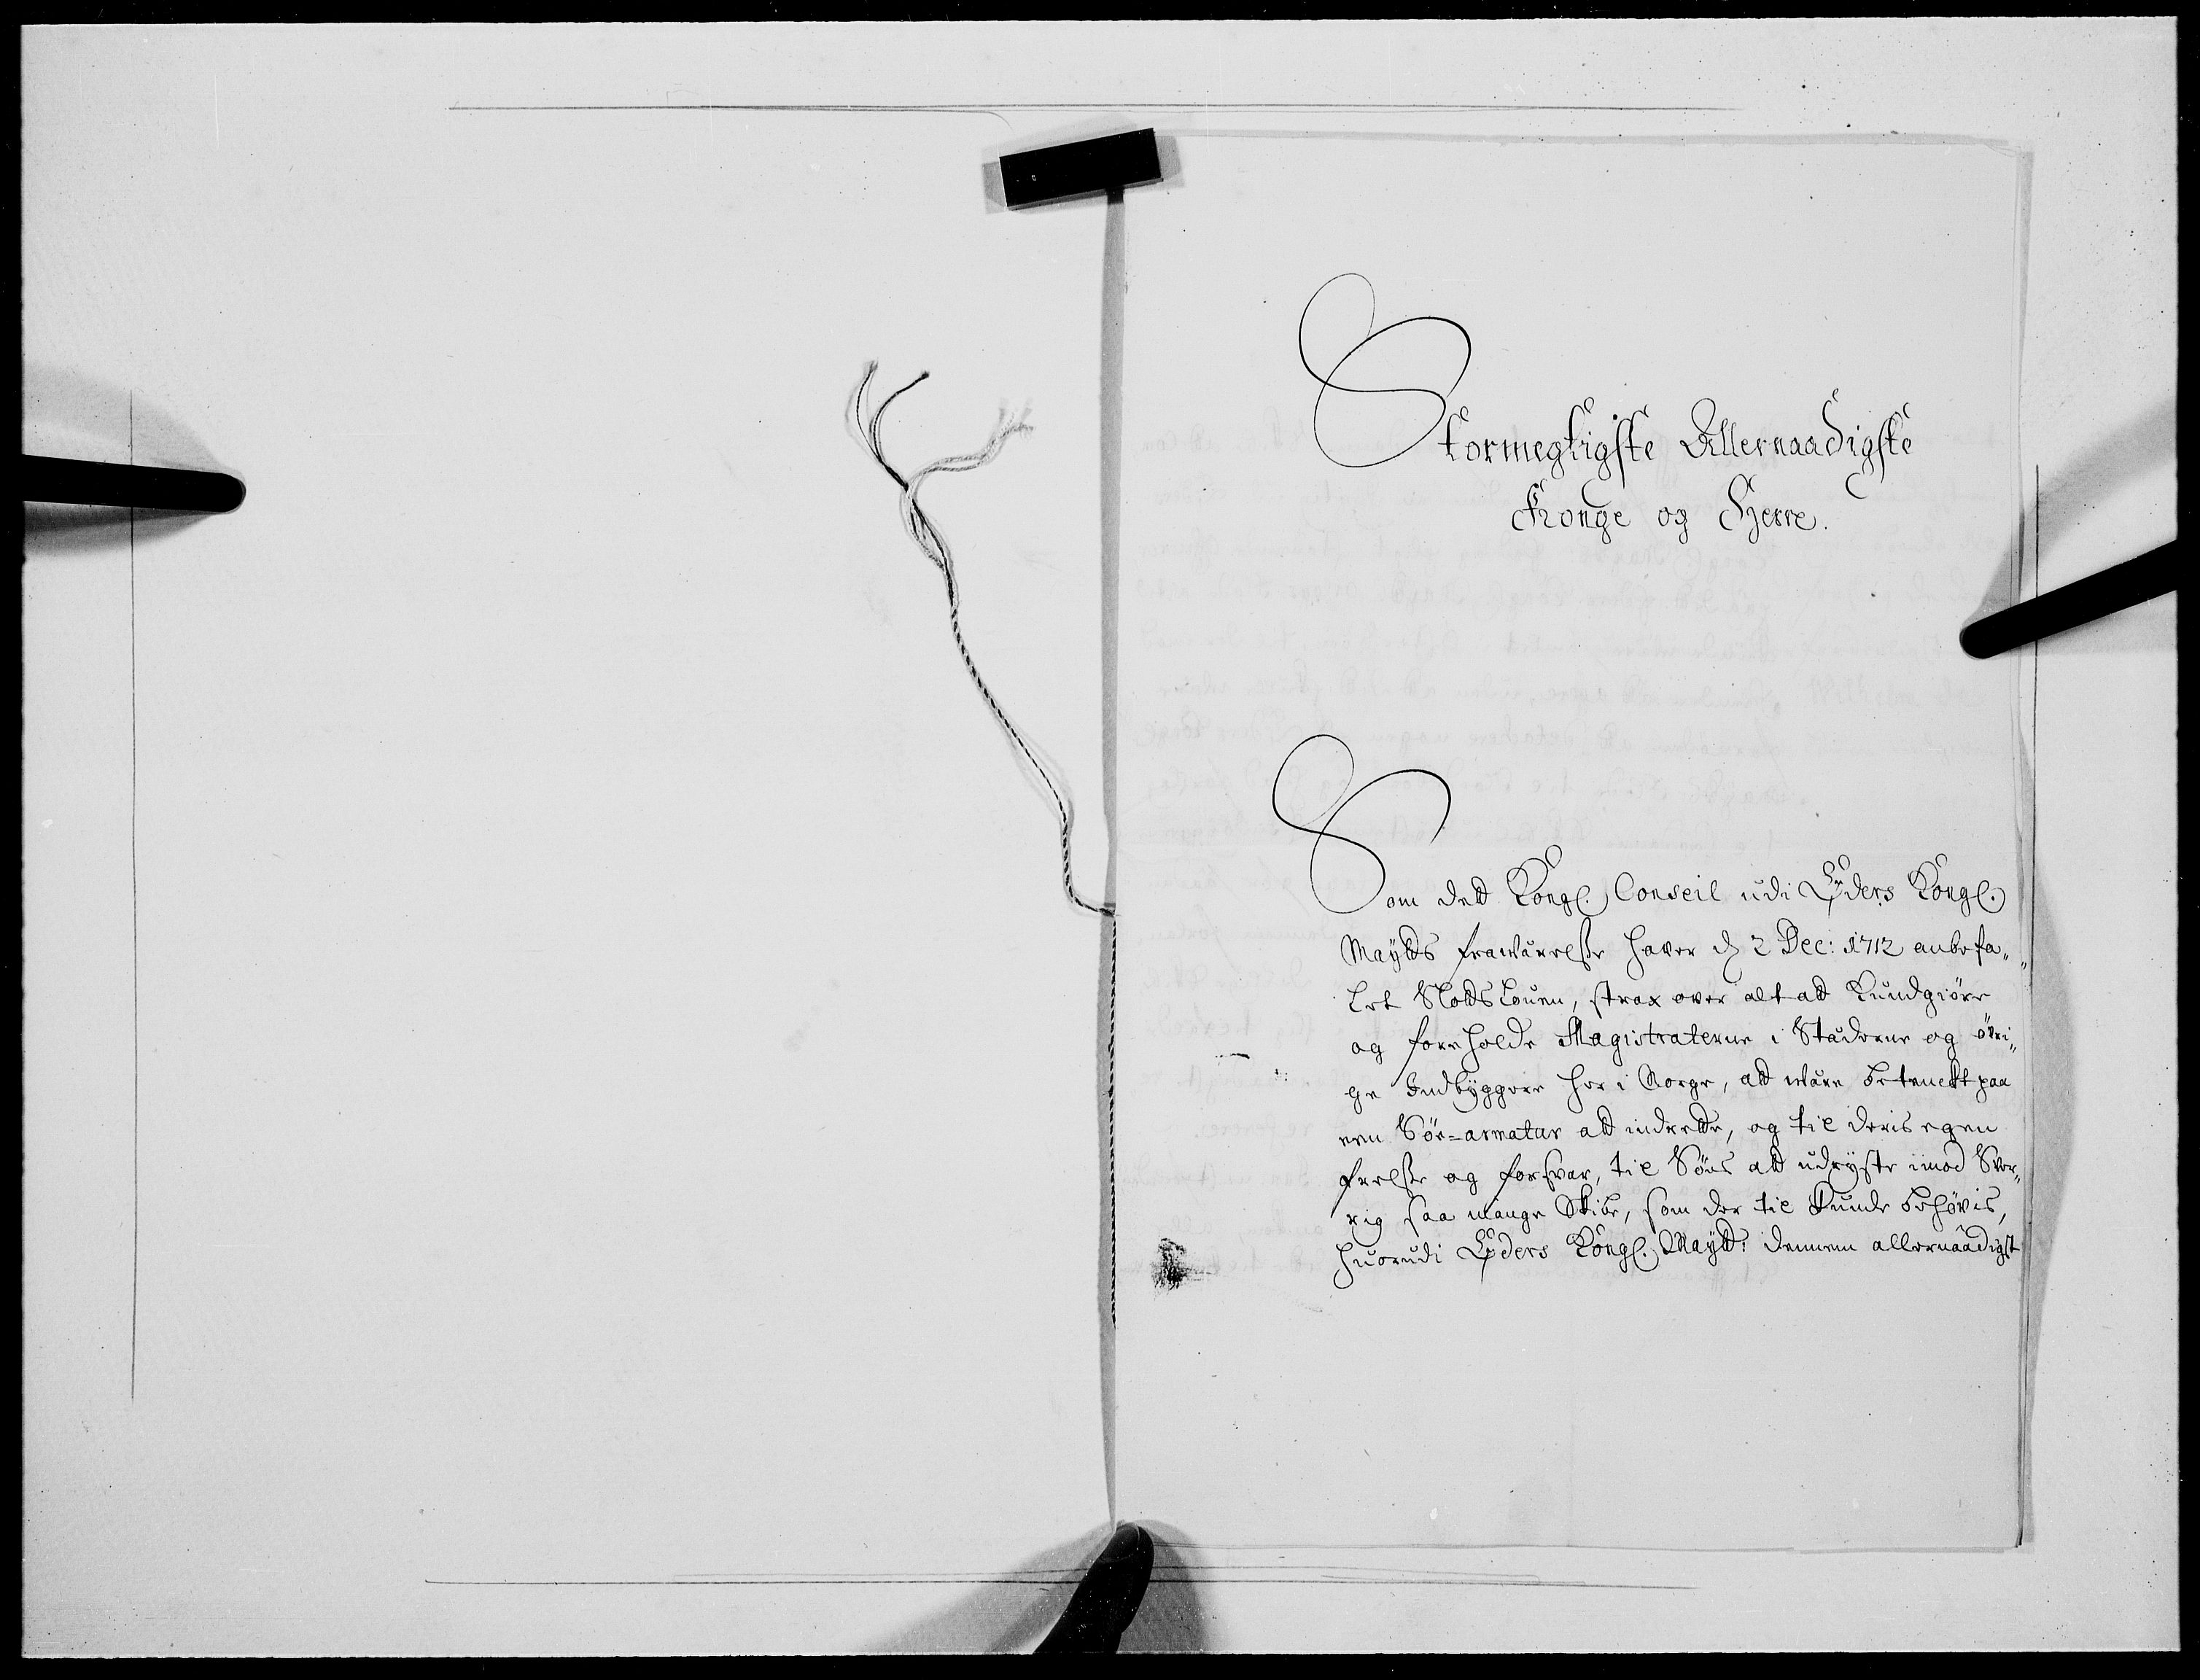 Stormegtigste Allernaadigste
Konge og Herre.
Som dett Kongl. Conseil udi Eyders Kongl.
Maytts frawærelse haver d 2 Dec: 1712 anbefa„
let Slotsloven, strax over alt att kundgiøre
og foreholde Magistraterne i Stæderne og övri„
ge Indbyggere her i Norge, att være betenckt paa
een Söe-armatur att indrette, og til deris egen
frelse og forsvar, til Söes att udryste imod Sver„
rig saa mange Skibe, som der til kunde behøvis,
huorudi Eyders Kongl. Maytt: dennem allernaadigst